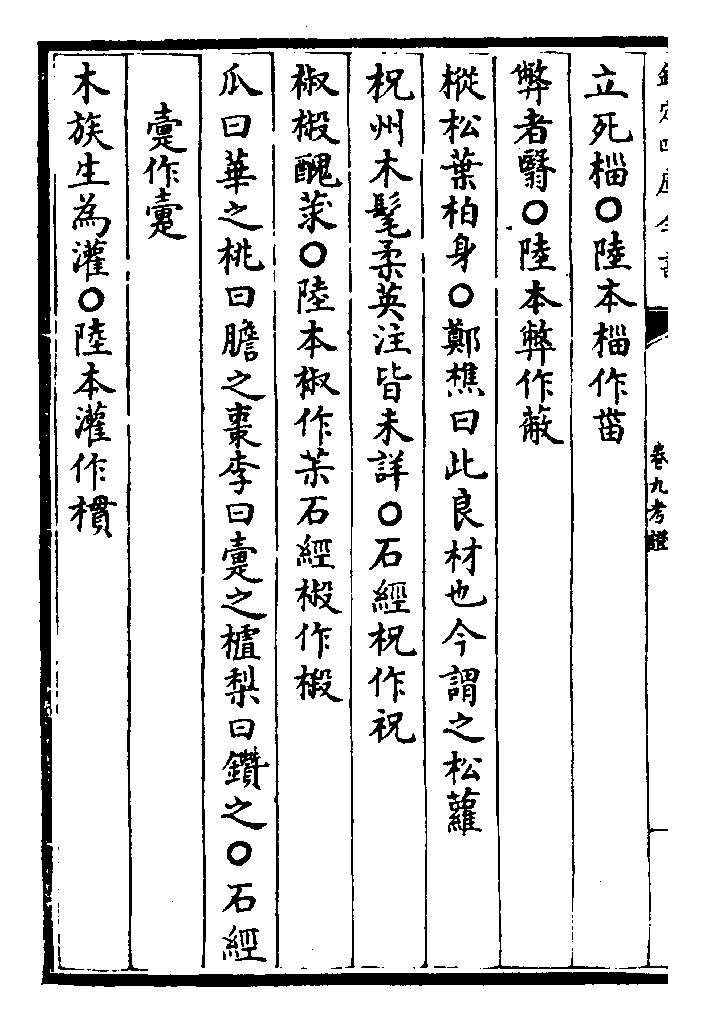 欽定四庫全書
卷九考證
立死椔○陸本椔作菑
弊者翳○陸本弊作蔽
樅松葉柏身○鄭樵曰此良材也今謂之松蘿
柷州木髦柔英注皆未詳○石經柷作祝
椒樧醜莍○陸本椒作茮石經樧作椴
瓜曰華之桃曰膽之棗李曰疐之樝梨曰鑽之○石經
疐作疐
木族生為灌○陸本灌作樌